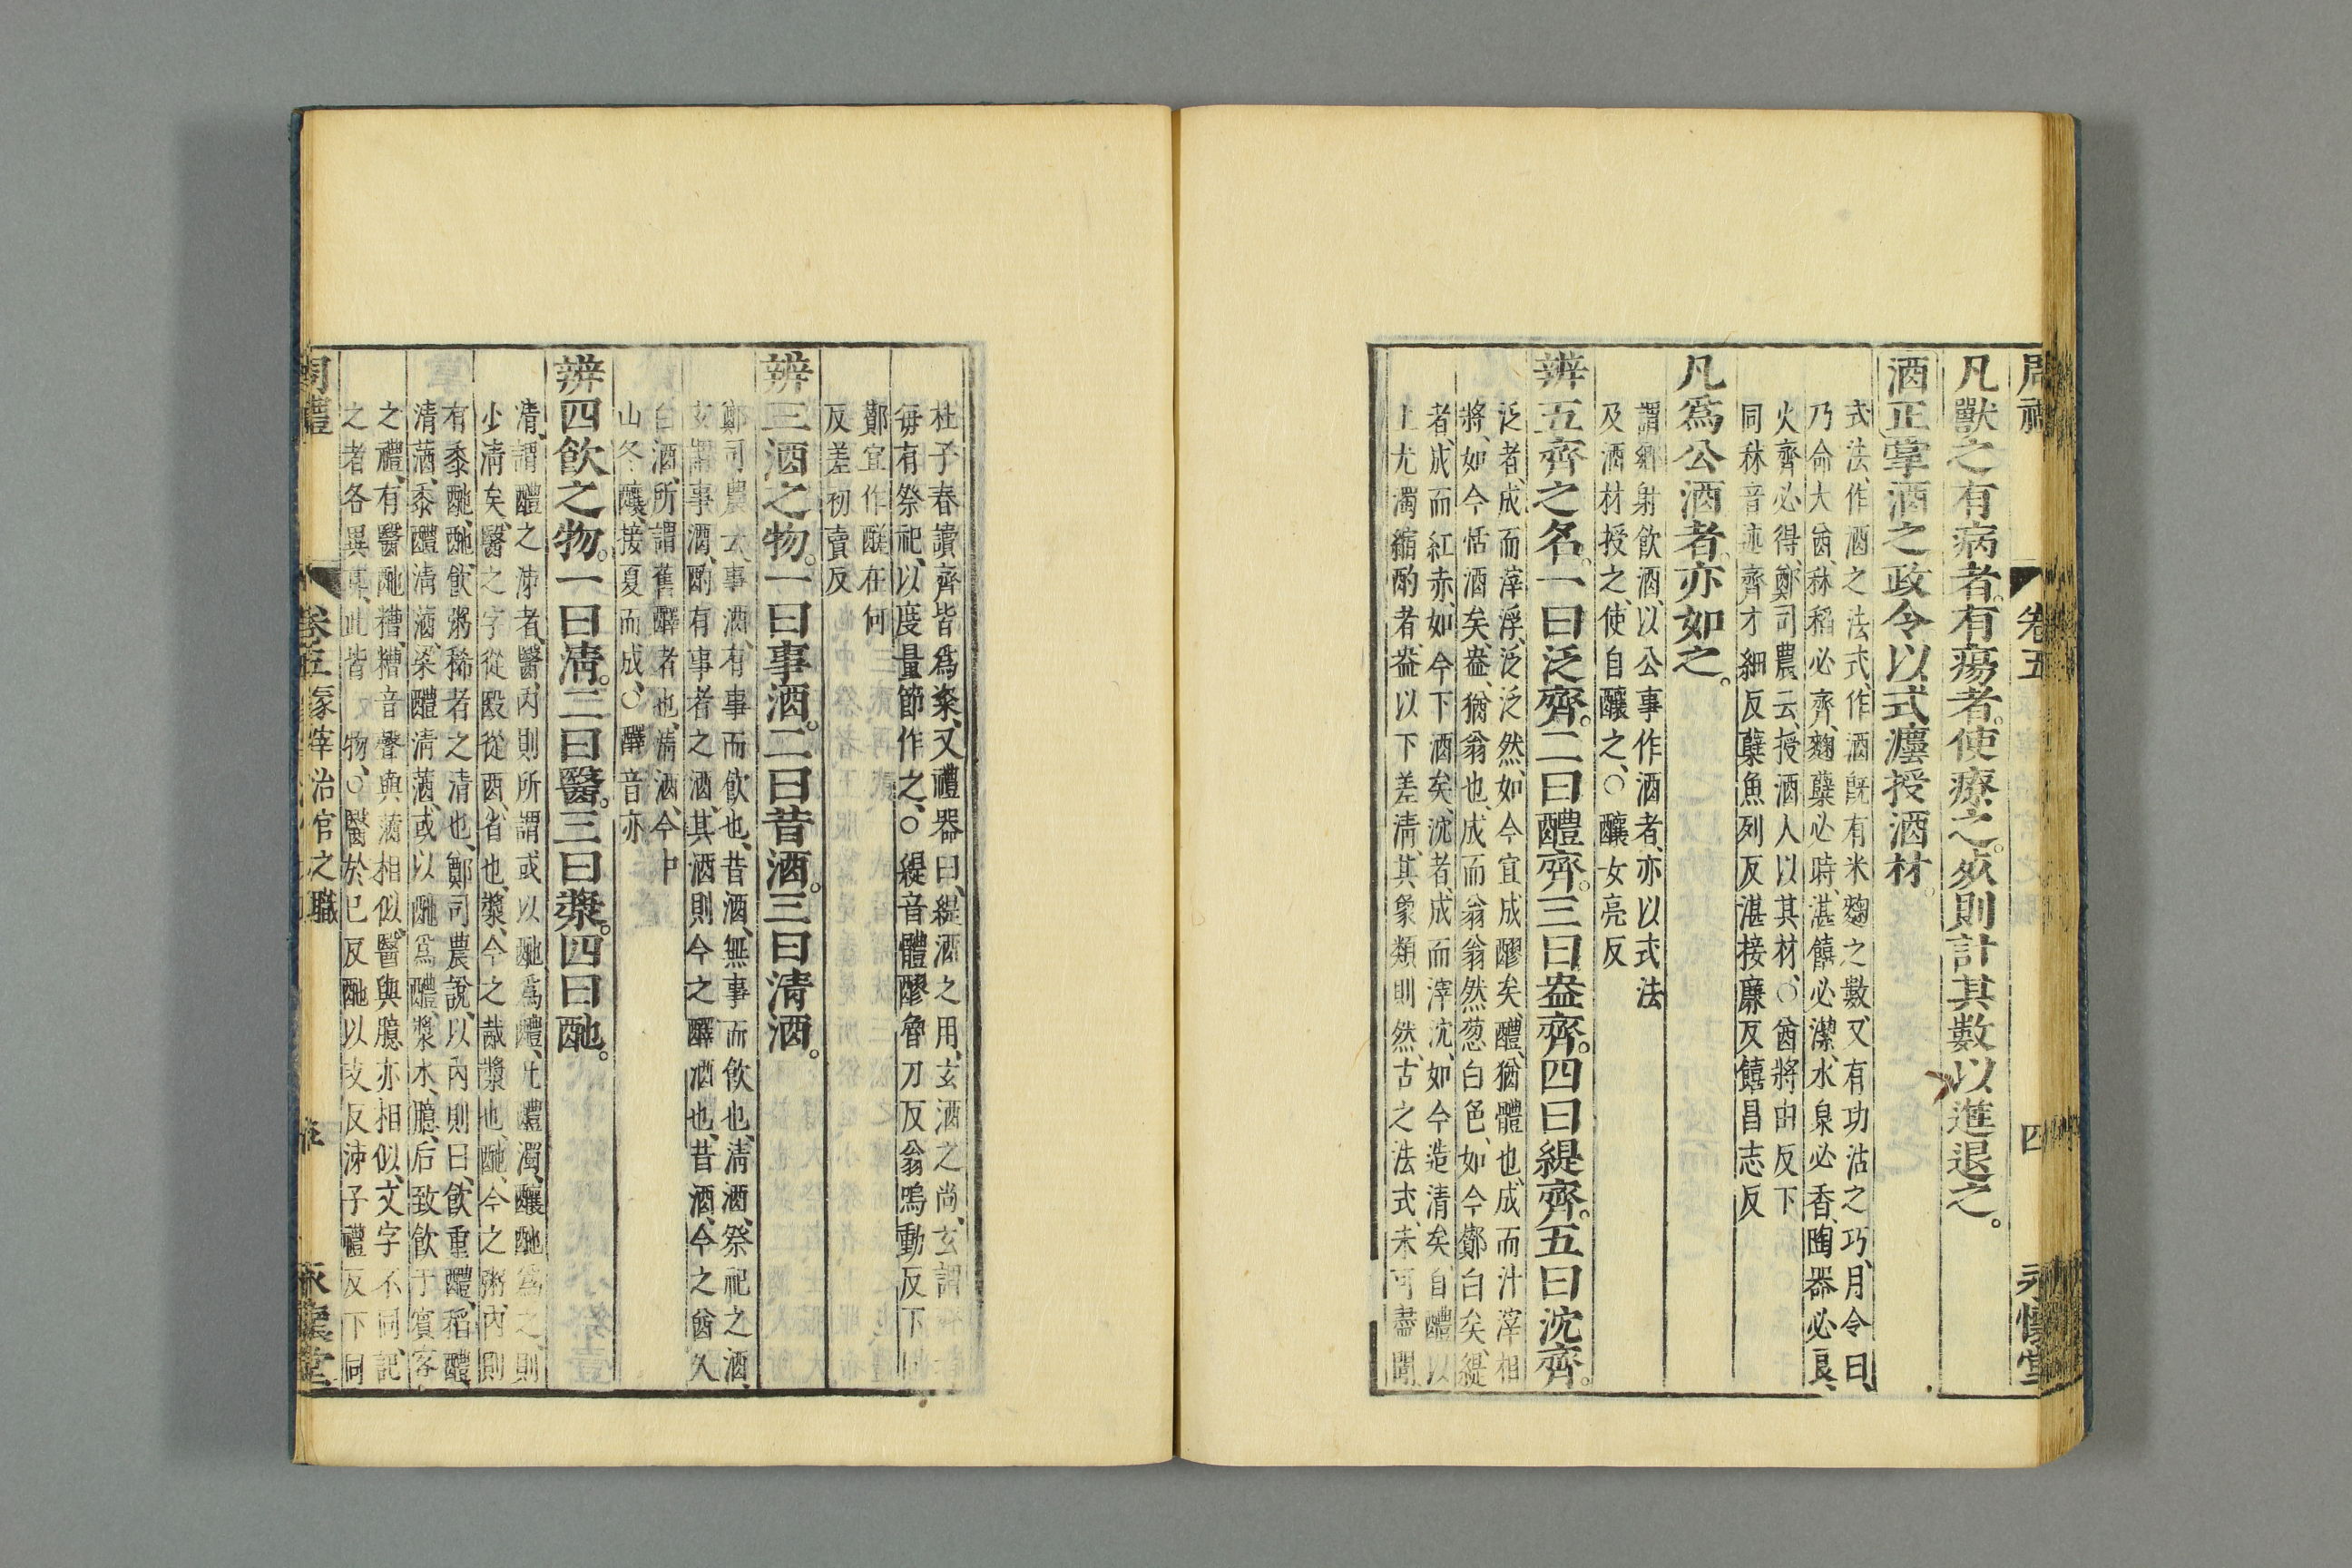 卷五
四
永懷堂
凡獸之有病者。有瘍者。使療之。死則計其數以進退之。
酒正掌酒之政令以式灋授酒材。
式法、作酒之法式、作酒旣有米麴之數、又有功沽之巧、月令曰、
乃命大酋、秫稻必齊、麴糵必時、湛饎必潔、水泉必香、陶器必良、
火齊必得、鄭司農云、授酒人以其材、○酋將由反下
同秫音述齊才細反糵魚列反湛接廉反饎昌志反
凡爲公酒者、亦如之。
謂鄉射飮酒、以公事作酒者、亦以式法
及酒材授之、使自釀之、○釀女亮反
辨五齊之名。一曰泛齊。二曰醴齊。三曰盎齊。四曰緹齊。五曰沈齊。
泛者、成而滓浮、泛泛然、如今宜成醪矣、醴、猶體也、成而汁滓相
將、如今恬酒矣、盎、猶翁也、成而翁翁然葱白色、如今酇白矣、緹
者、成而紅赤、如今下酒矣、沈者、成而滓沈、如今造清矣、自醴以
上尤濁縮酌者、盎以下差清、其象類則然、古之法式、未可盡聞、
杜子春讀齊皆爲粢、又禮器曰、緹酒之用、玄酒之尚、玄謂
每有祭祀、以度量節作之、○緹音體醪魯刀反翁嗚動反下同
酇宜作醝在何
反差初賣反
辨三酒之物。一曰事酒。二曰昔酒。三曰清酒。
鄭司農云、事酒、有事而飮也、昔酒、無事而飮也、清酒、祭祀之酒、
玄謂事酒、酌有事者之酒、其酒則今之醳酒也、昔酒、今之酋久
白酒、所謂舊醳者也、清酒、今中
山冬釀、接夏而成、○醳音亦
辨四飮之物。一曰清。二曰醫。三曰漿。四曰酏。
清、謂醴之泲者、醫、內則所謂或以酏爲醴、凡醴濁、釀酏爲之、則
少清矣、醫之字從殹從酉、省也、漿、今之胾漿也、酏、今之粥、內則
有黍酏、酏、飮粥稀者之清也、鄭司農說、以內則曰、飮重醴、稻醴、
清䣧、黍醴清䣧、粱醴清䣧、或以酏爲醴、漿水、臆、后致飮于賓客
之禮、有醫酏糟、糟音聲與䣧相似、醫與臆亦相似、文字不同、記
之者各異耳、此皆一物、○醫於已反酏以支反泲子禮反下同
周禮
卷五冢宰治官之職
五
永懷堂